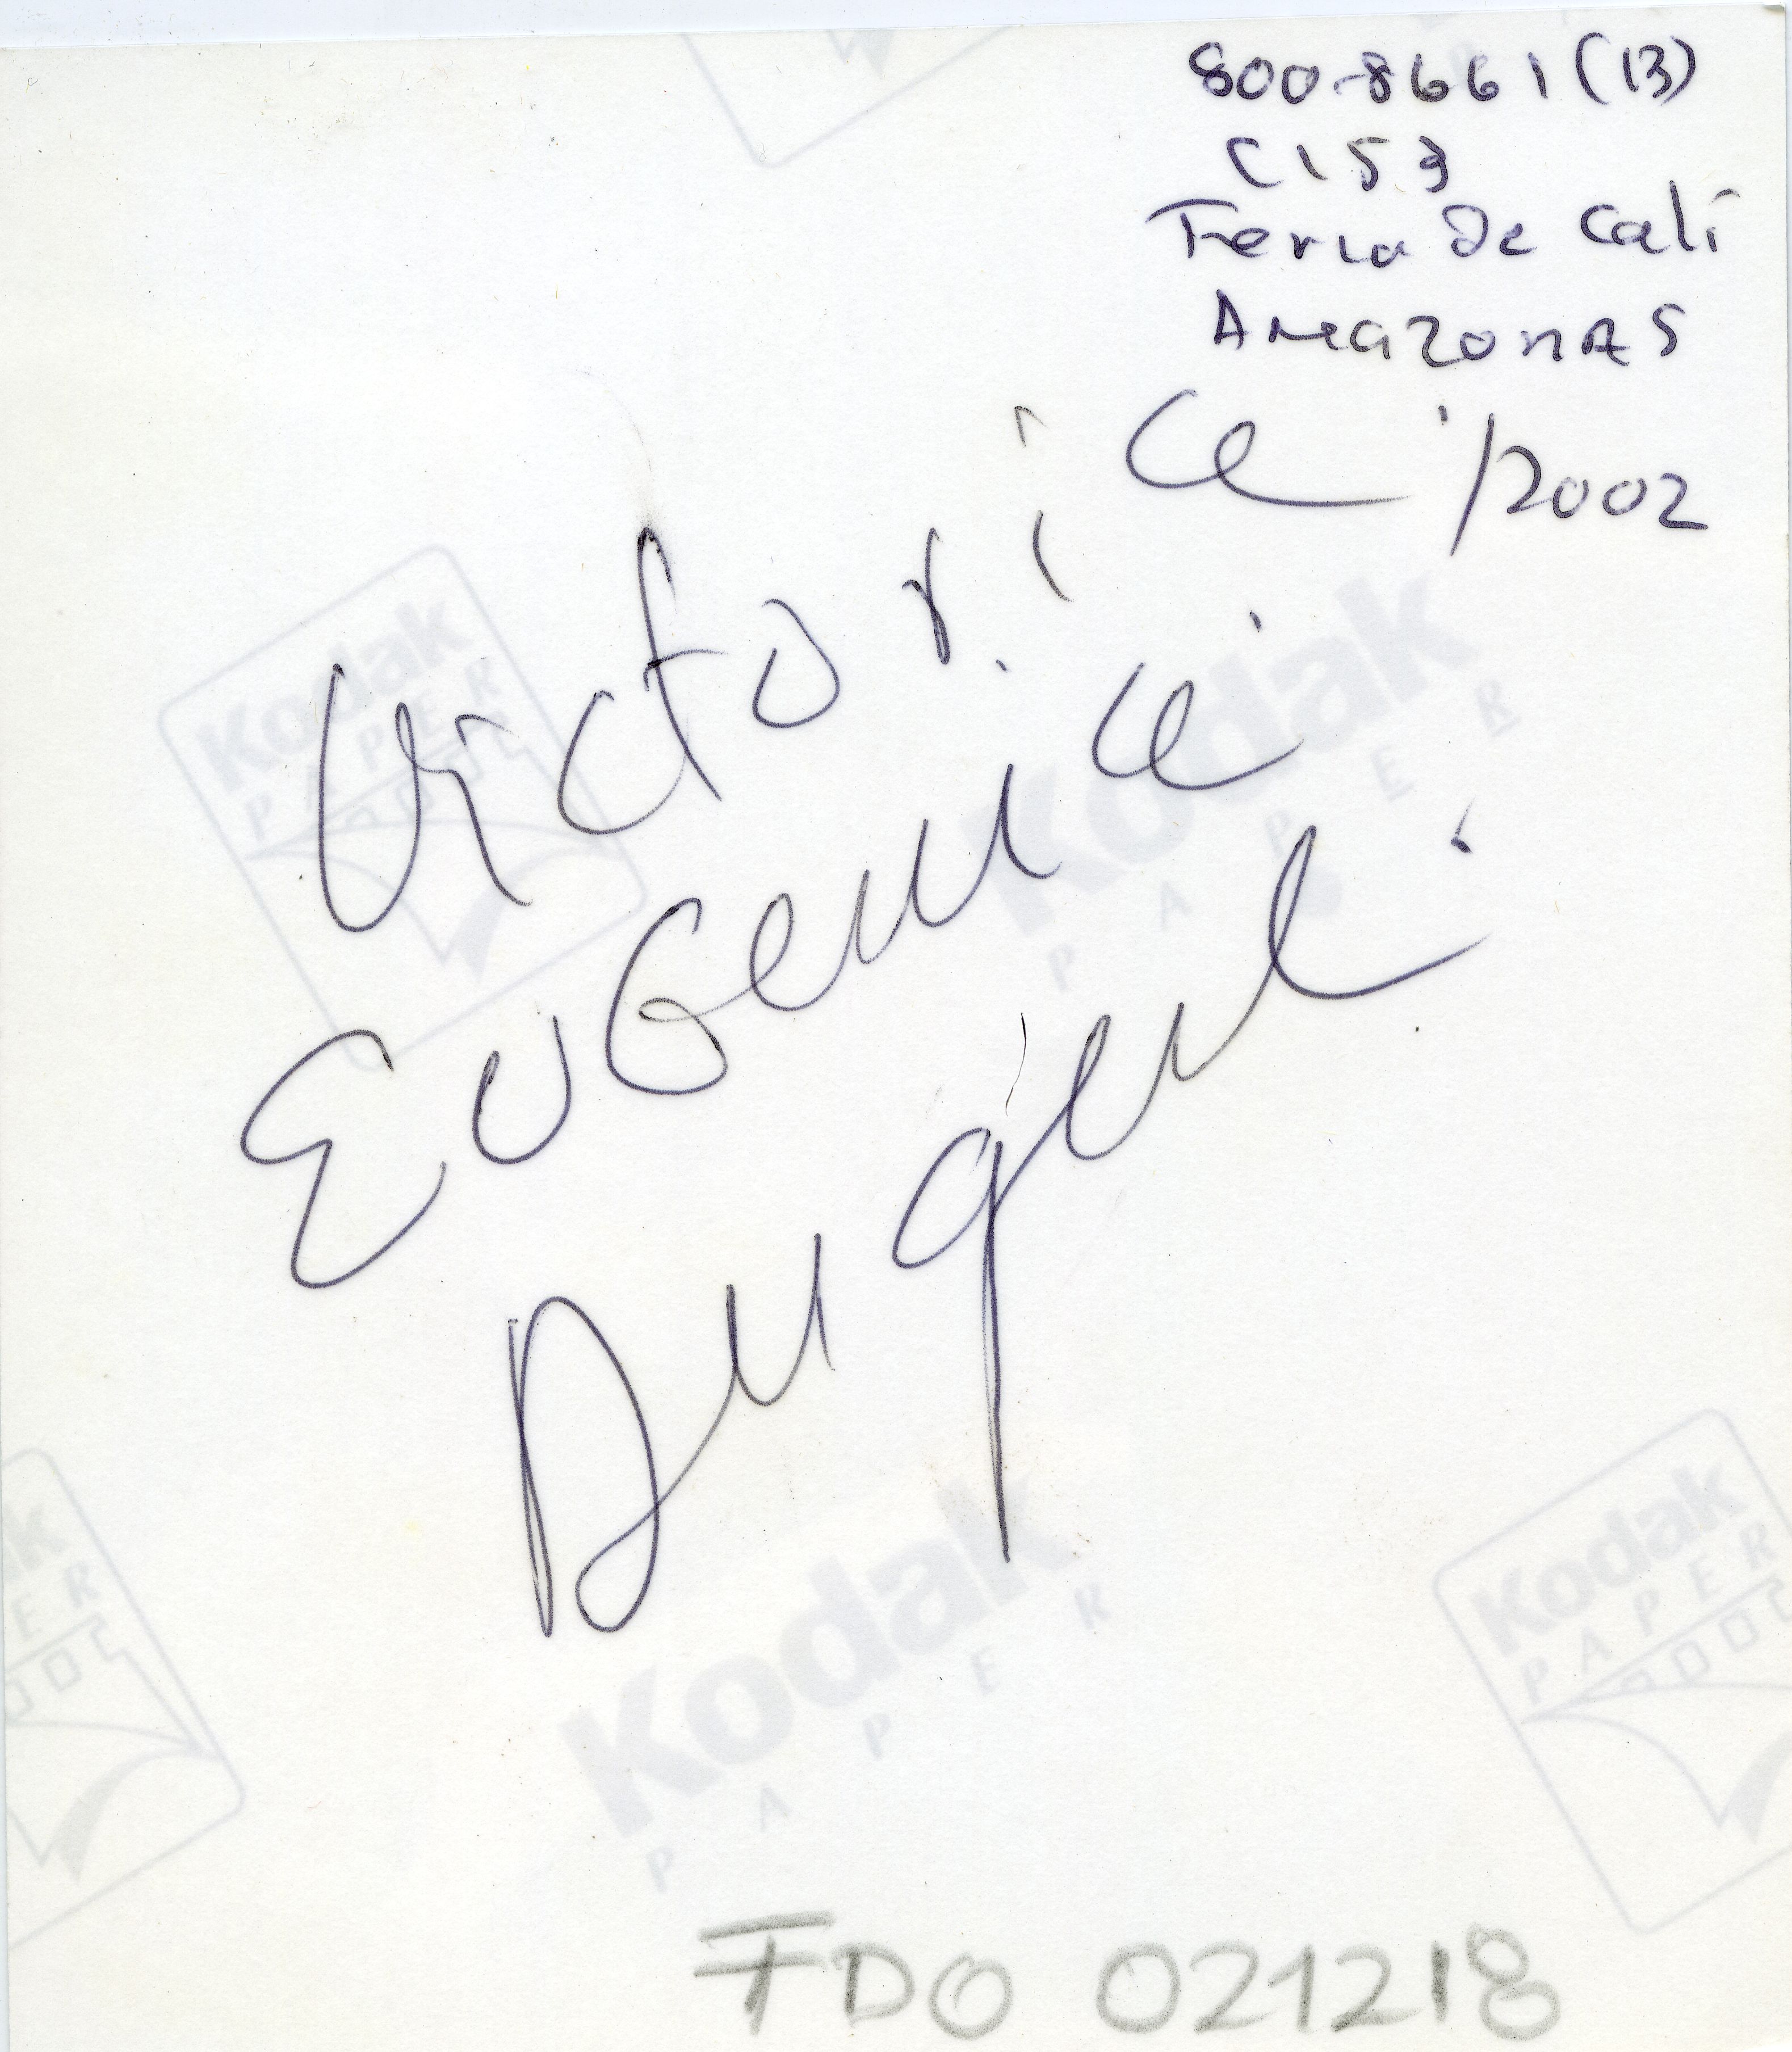 800-8661 (13)
C153
Feria De Cali
AMAZONAS
/2002
Victoria
EuGenia
Kodak
PAPER
Kodak
PAPER
Kodak
PAPER
Kodak
PAPER
FDO 021218